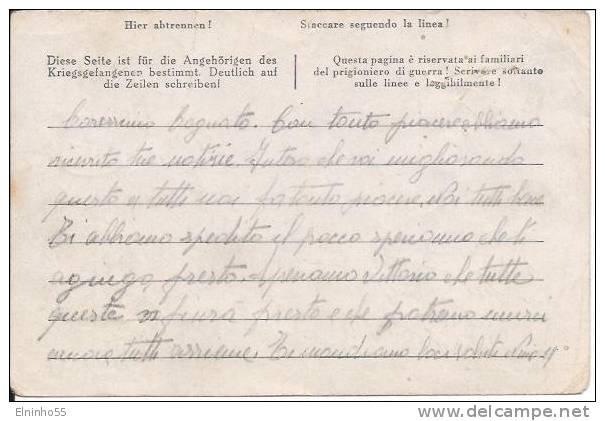 Hier abtrennen!
Staccare seguendo la linea!
Diese Seite ist für die Angehörigen des
Kriegsgefangenen bestimmt. Deutlich auf
die Zeilen schreiben!
Questa pagina è riservata ai familiari
del prigioniero di guerra! Scrivere soltanto
sulle linee e leggibilmente!
Carissimo Cognato. Con tanto piacere abbiamo
ricevuto tue notizie. che vai migliorando
questo a tutti noi fa tanto piacere, Noi tutti bene
Ti abbiamo spedito il pacco speriamo che ti
agiugo presto. speriamo Vittorio che tutte
queste finirà presto e che potremo
ancora tutti assieme. Ti mandiamo saluti
Elninho55
www.delcampe.net